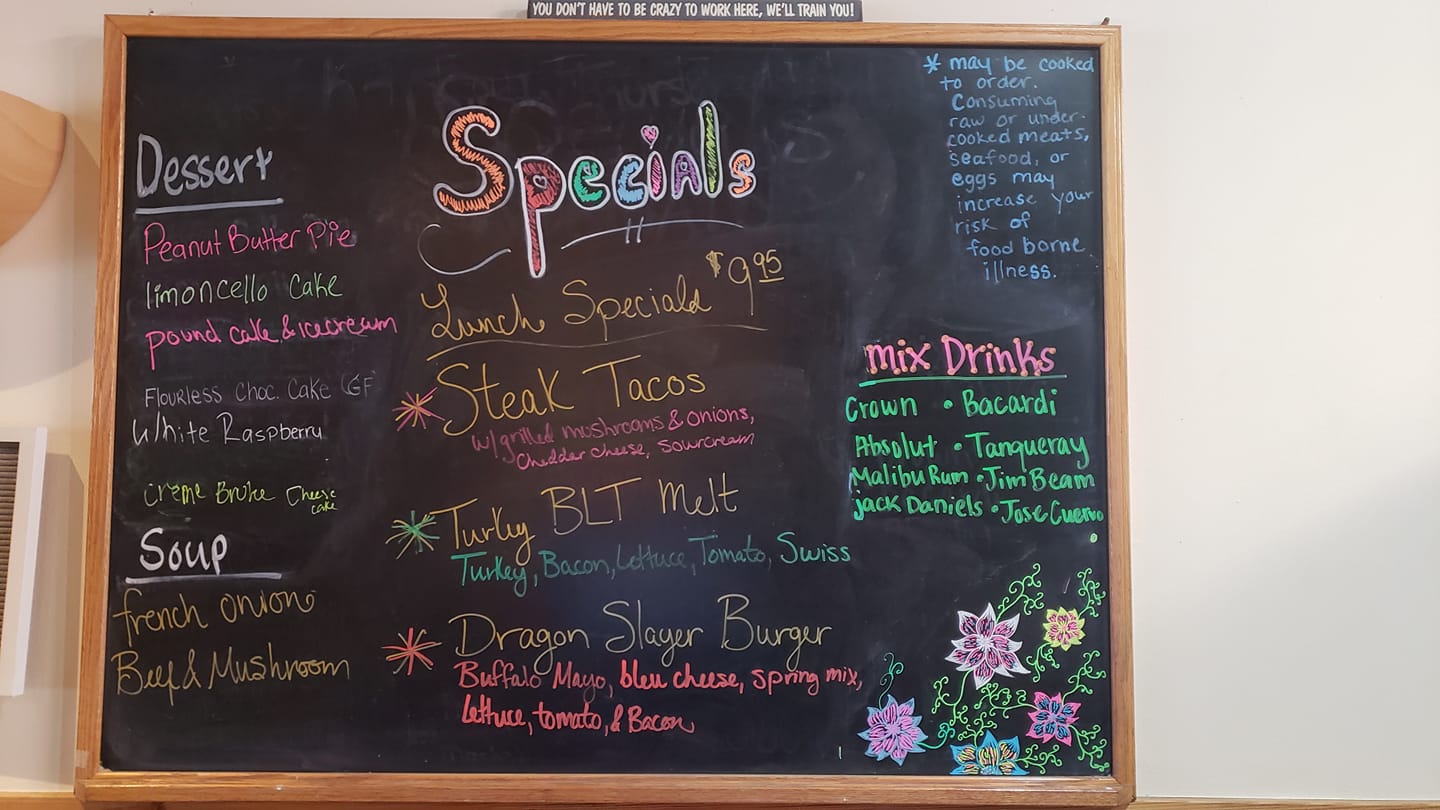 YOU DON'T HAVE TO BE CRAZY TO WORK HERE, WE'LL TRAIN YOU!
Specials
Lunch Specials $9.95
Steak Tacos
w/grilled mushrooms & onions,
Cheddar cheese, sourcream
Turkey BLT Melt
Turkey, Bacon, Lettuce, Tomato, Swiss
Dragon Slayer Burger
Buffalo Mayo, bleu cheese, spring mix,
lettuce, tomato, & Bacon
Dessert
Peanut Butter Pie
limoncello Cake
pound cake & icecream
Flourless Choc. Cake GF
White Raspberry
creme Brule Cheese
cake
Soup
french onion
Beef & Mushroom
* may be cooked
to order.
Consuming
raw or under-
cooked meats,
seafood, or
eggs may
increase your
risk of
food borne
illness.
mix Drinks
Crown • Bacardi
Absolut • Tanqueray
Malibu Rum • Jim Beam
jack Daniels • Jose Cuervo